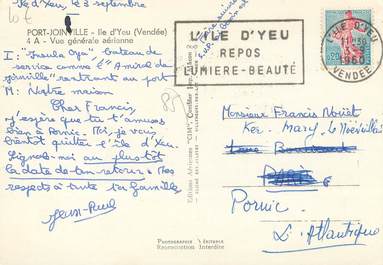 Ile d'Yeu, le 2 septembre
10 €
PORT-JOINVILLE - Ile d'Yeu (Vendée)
4 A - Vue générale aérienne
I : "Insula Oya" bateau de
service comme l'"Amiral de
Joinville" rentrant au port
M : Notre maison
Cher Francis
J'espère que tu t'amuses
bien à Pornic. Moi, je vais
bientôt quitter l'île d'Yeu.
Signale-moi au plus tôt
la date de ton retour. Mes
respects à toute ta famille
Jean-Paul
L'ILE D'YEU
REPOS
LUMIERE-BEAUTÉ
L'ILE D'YEU
1960
VENDÉE
Editions Aériennes "CIM", Combier Imp. Mâcon
Monsieur Francis
Ker-
Pornic
L. Atlantique
PHOTOGRAPHIE VÉRITABLE
Reproduction Interdite